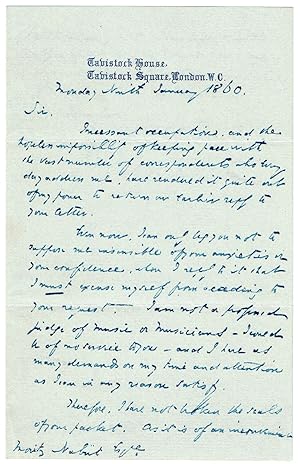 Tavistock House,
Tavistock Square, London. W.C.
Monday Ninth January 1860.
Sir.
Incessant occupation, and the
hopeless impossibility of keeping pace with
the vast number of correspondents who every
day address me, have rendered it quite out
of my power to return an earlier reply to
your letter.
Even now, I can only beg you not to
suppose me insensible of your anxieties or
your confidence, when I reply to it that
I must excuse myself from acceding to
your request. I am not a professed
judge of music or musicians - I could
be of no service to you - and I have as
many demands on my time and attention
as I can in any reason satisfy.
Therefore, I have not broken the seals
of your packet. As it is of an inconvenient
Moritz Esqre.